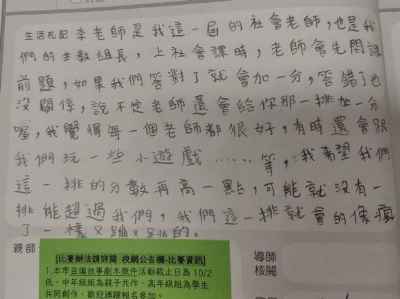 生活札記 李老師是我這一屆的社會老師,也是我
們的生教組長,上社會課時,老師會先問課
前題,如果我們答對了就會加一分,答錯了也
沒關係,說不定老師還會給你那一排加一分
喔,我覺得每一個老師都很好,有時還會跟
我們玩一些小遊戲……等,我希望我們
這一排的分數再高一點,可能就沒有一
排能超過我們,我們這一排就會的像瘋
了一樣又蹦又跳的。
親師
[比賽辦法請詳閱 校網公告欄-比賽資訊]
1.本市
劇本徵件活動截止日為10/2
低、中年級組為親子共作,高年級組為學生
共同創作,歡迎踴躍報名參加。
導師
核閱